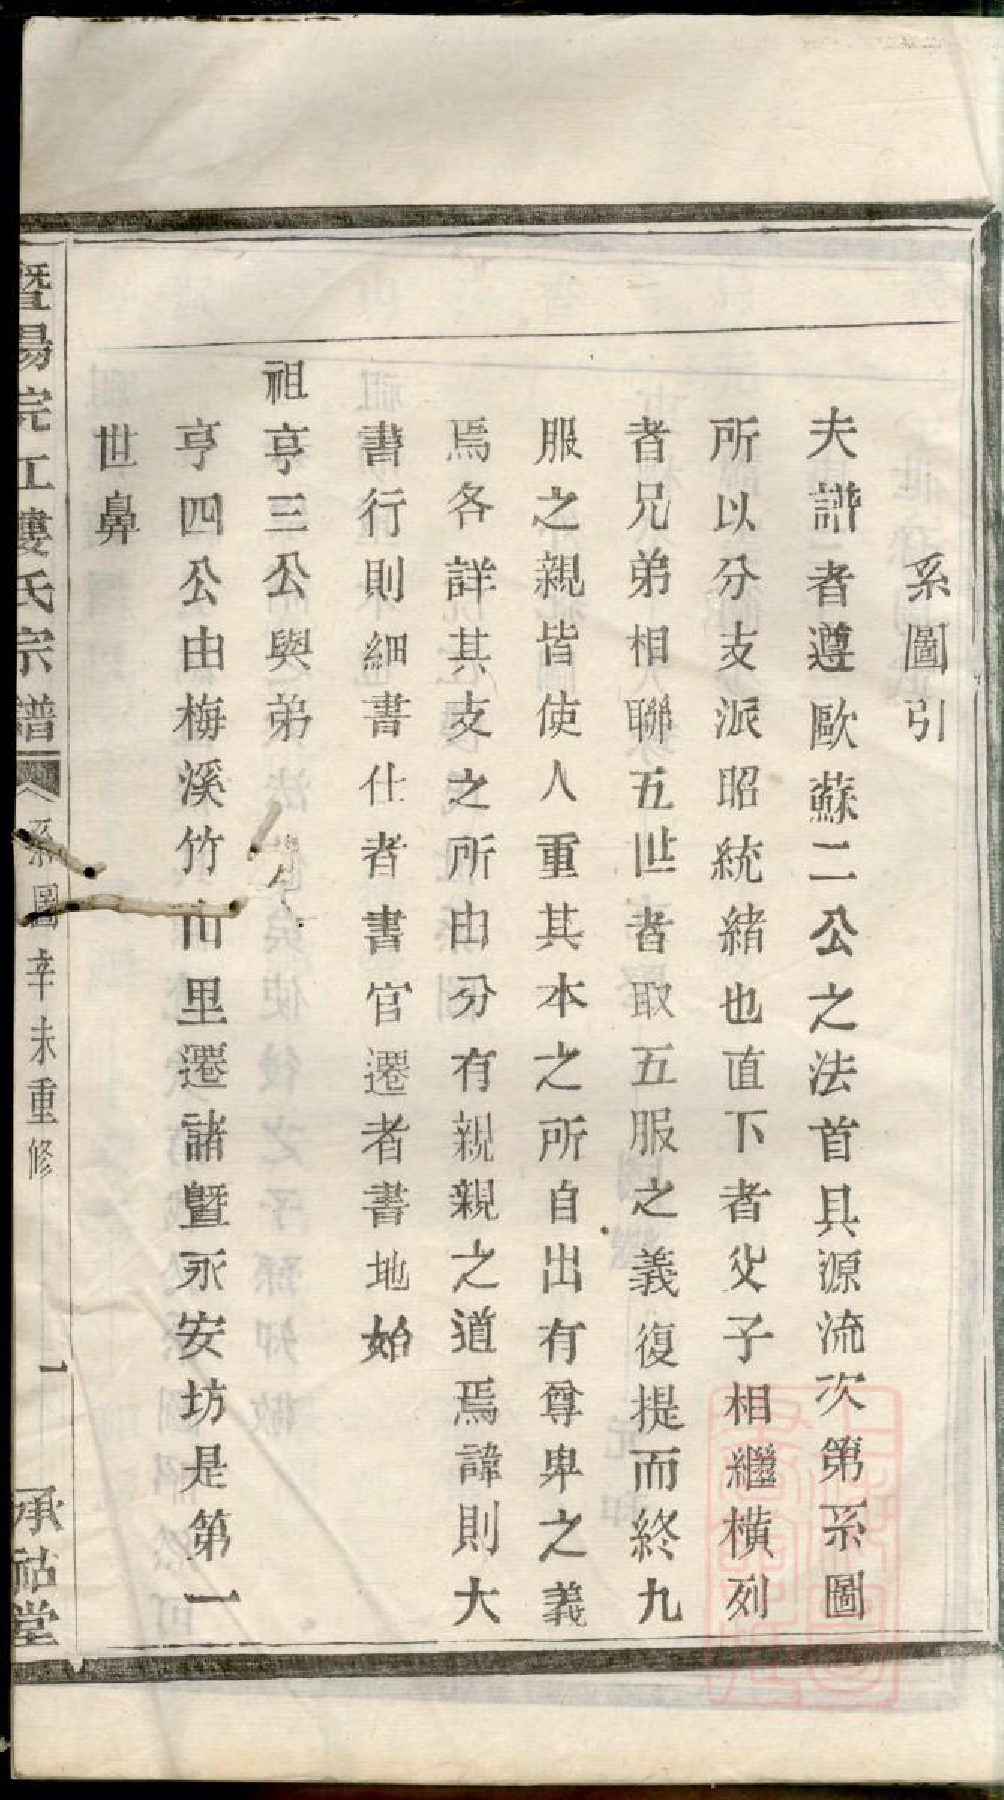 系圖引
夫譜者遵歐蘇二公之法首具源流次第系圖
所以分支派昭統緒也直下者父子相繼橫列
者兄弟相聯五世者取五服之義復提而終九
服之親皆使人重其本之所自出有尊卑之義
焉各詳其支之所由分有親親之道焉諱則大
書行則細書仕者書官遷者書地始
祖亨三公與弟
亨四公由梅溪竹山里遷諸暨永安坊是第一
世鼻
暨陽浣江婁氏宗譜
系圖 辛未重修
一
承祜堂